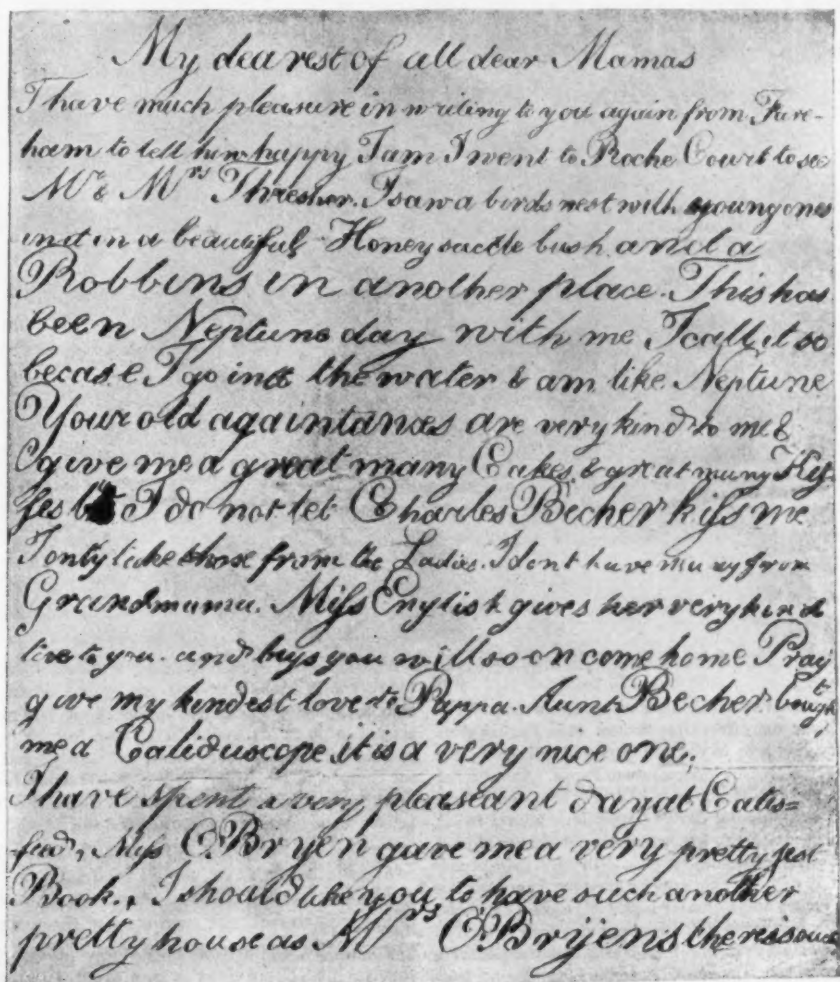 My dearest of all dear Mamas
I have much pleasure in writing to you again from Fare-
ham to tell how happy I am I went to Roche Court to see
Mr & Mrs Thresher. I saw a birds nest with young ones
in it in a beautiful Honey suckle bush and a
Robbins in another place. This has
been Neptune day with me I call it so
becase I go into the water & am like Neptune
Your old againtances are very kind to me &
give me a great many Cakes, & great many Kis-
ses but I do not let Charles Becher kiss me
I only take those from the Ladies. I dont have many from
Grandmama. Miss English gives her very kind
love to you. and hops you will soon come home Pray
give my kindest love to Pappa. Aunt Becher bought
me a Caliduscope it is a very nice one.
I have spent a very pleaseant day at Cates-
feed, Miss O'Bryen gave me a very pretty jest
Book., I should like you, to have such another
pretty house as Mrs O'Bryens there is such